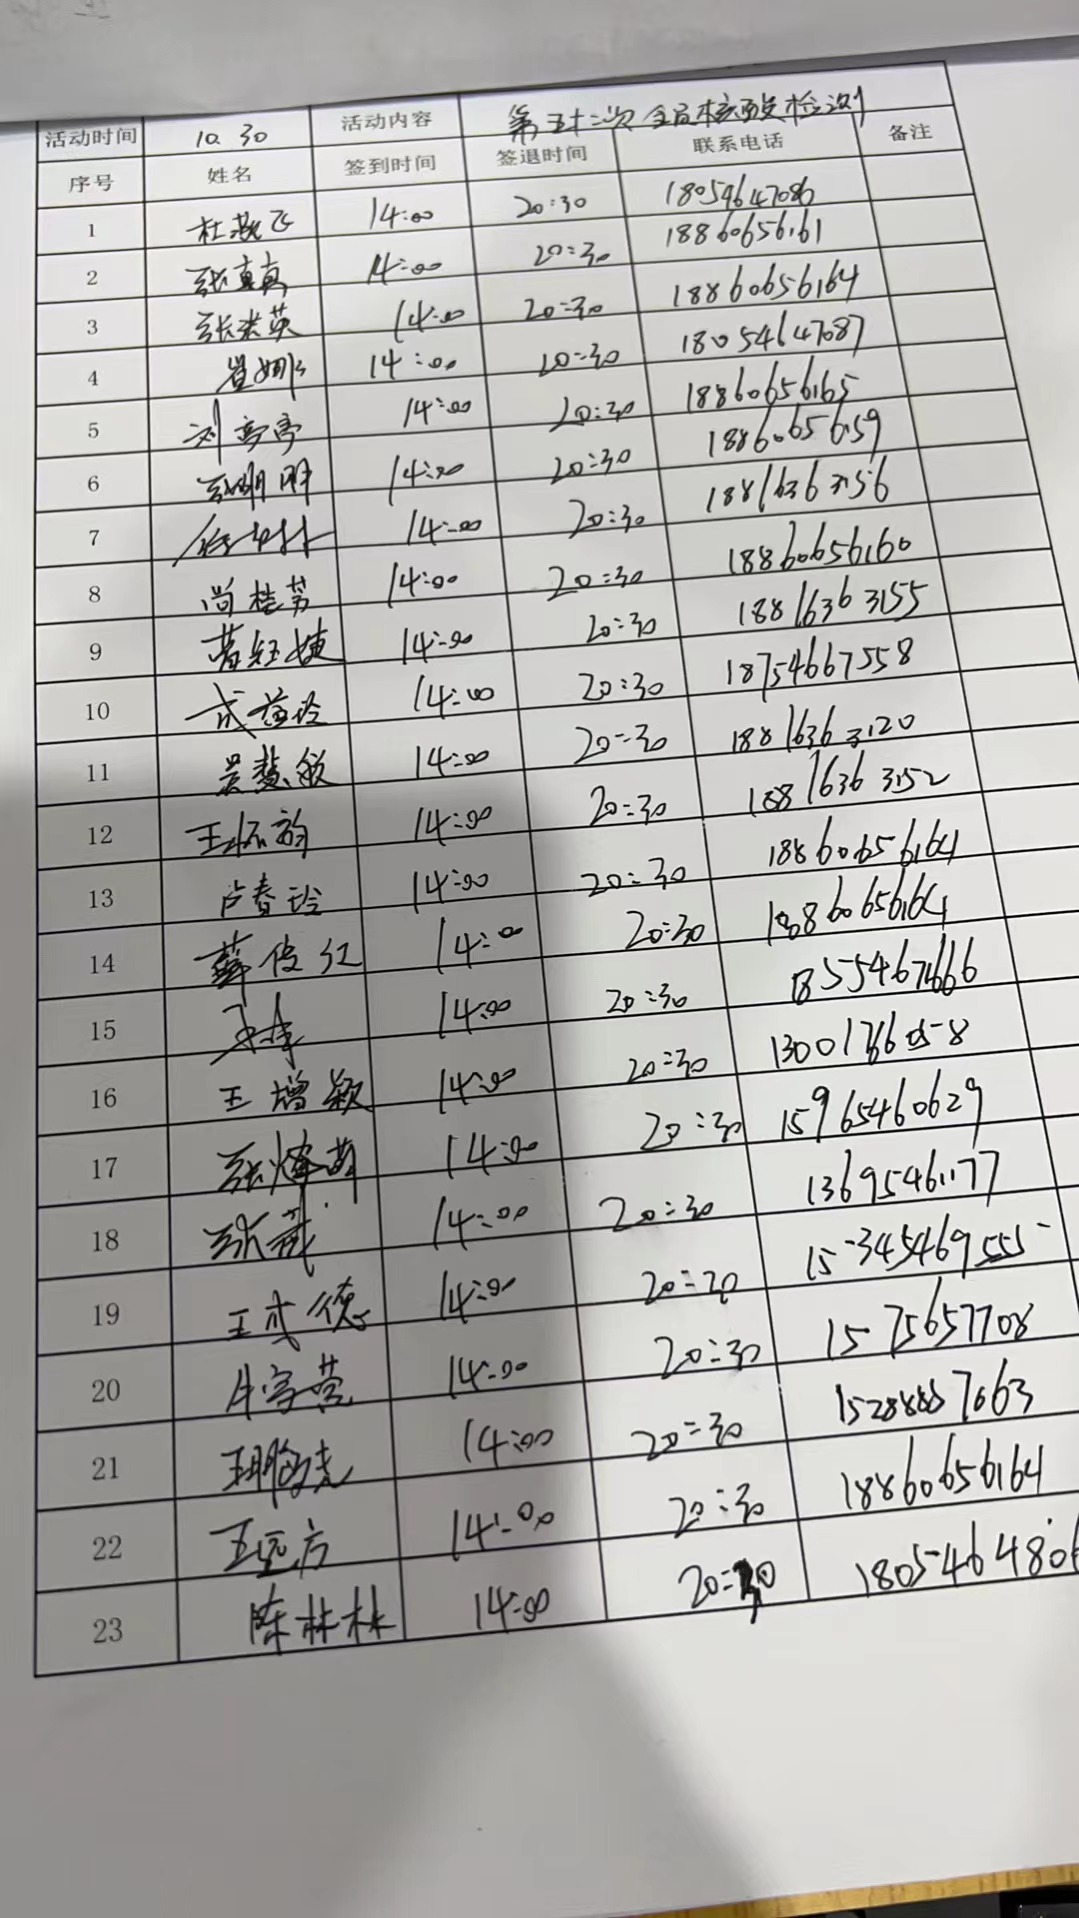 活动时间 10.30 活动内容 第五十二次全员核酸检测
序号 姓名 签到时间 签退时间 联系电话 备注
1 杜燕飞 14:00 20:30 18054647086
2 张真真 14:00 20:30 18860656161
3 张洪英 14:00 20:30 18860656164
4 崔娜 14:00 20:30 18054647087
5 刘亭亭 14:00 20:30 18860656165
6 张明明 14:00 20:30 18860656159
7 14:00 20:30 18816363156
8 尚桂芳 14:00 20:30 18860656160
9 14:00 20:30 18816363155
10 14:00 20:30 18754667558
11 吴慧敏 14:00 20:30 18816363120
12 14:00 20:30 18816363152
13 卢春玲 14:00 20:30 18860656164
14 薛俊红 14:00 20:30 18860656164
15 14:00 20:30
16 王增颖 14:00 20:30
17 14:00 20:30 15965460629
18 14:00 20:30 13695461177
19 王武德 14:00 20:30
20 14:00 20:30 1575657708
21 14:00 20:30
22 王远方 14:00 20:30 18860656164
23 陈林林 14:00 20:30 1805464806